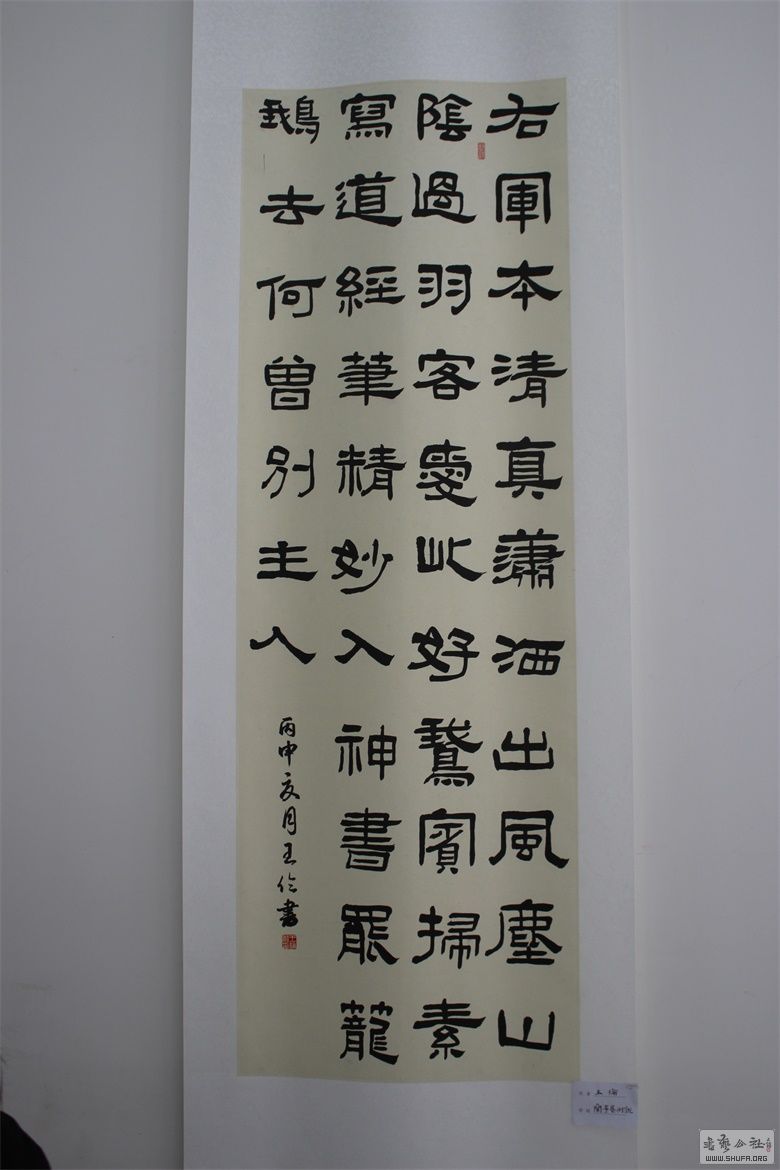 右軍本清真瀟洒出風塵山
陰過羽客愛此好鵞賓掃素
寫道經筆精妙入神書罷籠
鵝去何曽別主人
丙申亥月王伦書
書藝公社
WWW.SHUFA.ORG